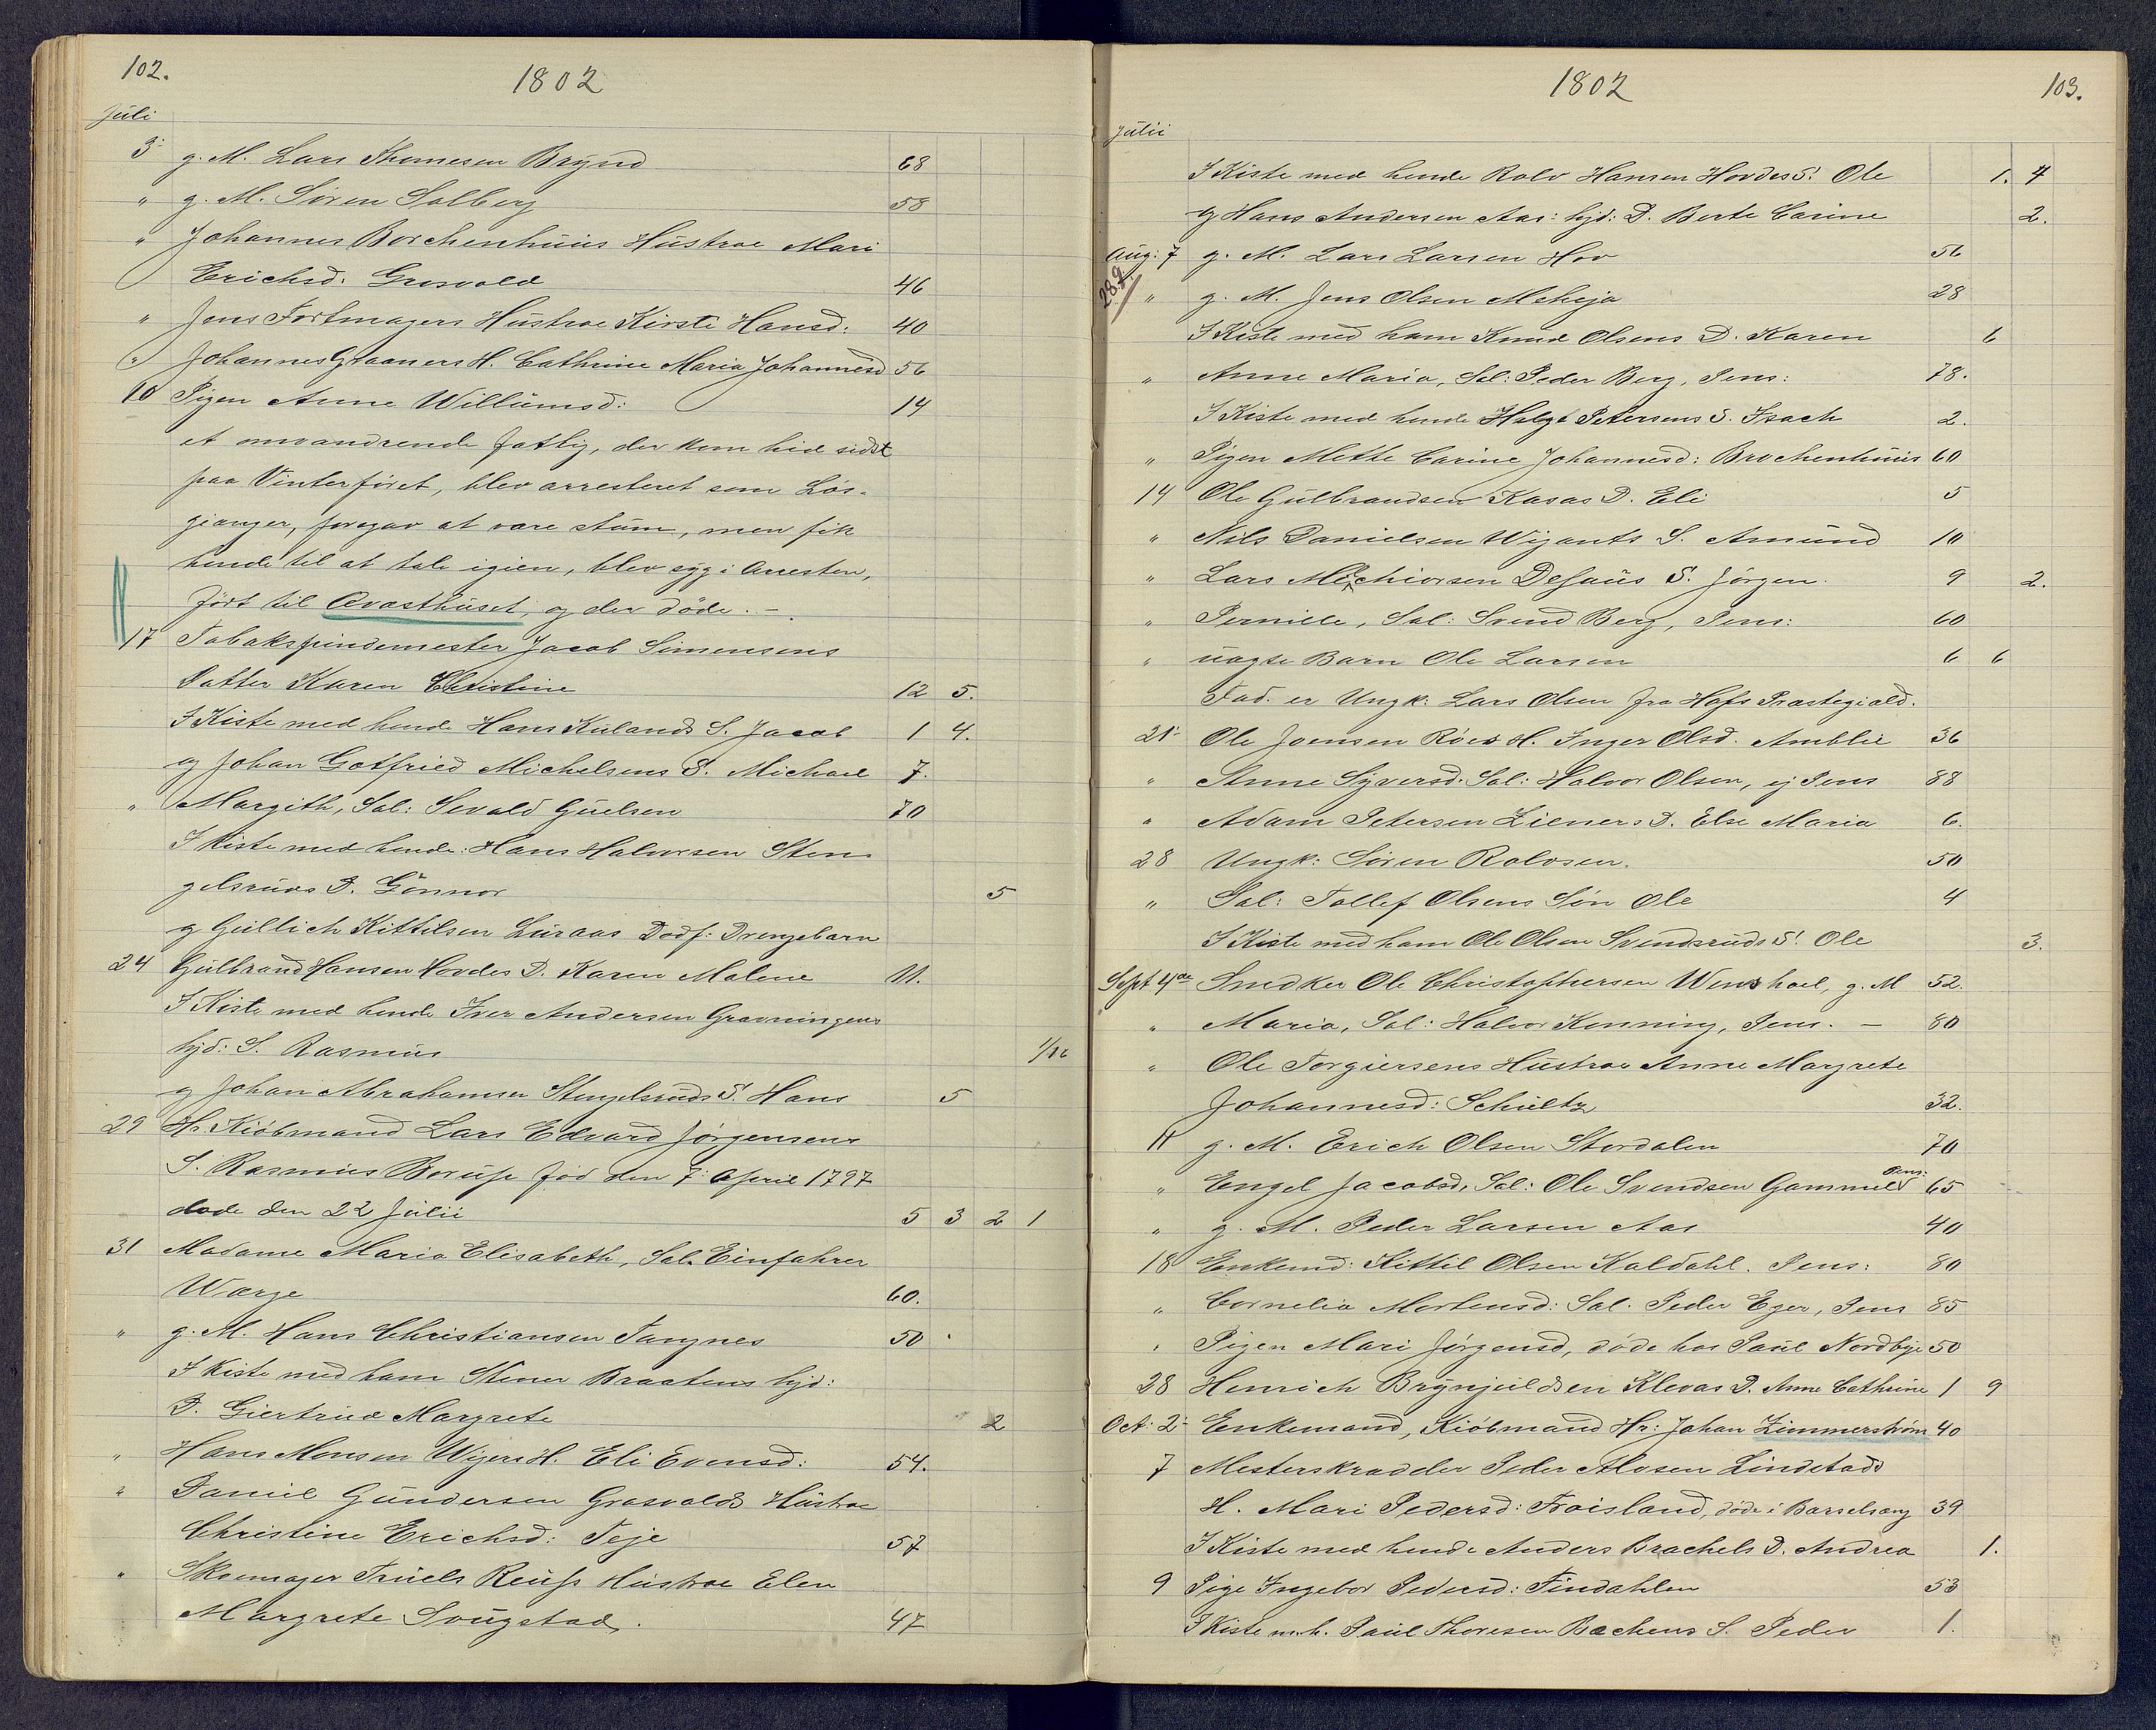 102.
1802
Juli
3 g. M. Lars Thomesen Brynd 68
" g. M. Sören Solberg 58
" Johannes Borchenhuus Hustroe Mari
Erichsd. Grosvold 46
" Jens Fortmagers Hustroe Kirsti Hansd: 40
" Johannes Graaners H. Cathrine Maria Johannesd 56
10 Pigen Anne Willumsd: 14
et omvandrende fattig, der kom hid sidst
paa Vinterföret, blev arresteret som Lös-
giænger, foregav at være stum, men fik
hende til at tale igien, blev syg i Arresten,
fört til Qvasthuset, og der döde. -
17 Tobakspindemester Jacob Simensens
Datter Karen Christine 12 5.
I Kiste med hende Hans Kulands S. Jacob 1 4.
og Johan Gotfried Michelsens S. Michael 7.
" Margith, Sal: Sevald Guelsen 70
I Kiste med hende: Hans Halvorsen Sten
gelsruds D. Gönnor 5
og Gullich Kittilsen Luraas Dödf: Drengebarn
24 Gulbrand Hansen Hovdes D. Karen Malene 11.
I Kiste med hende Iver Andersen Gravningens
hjd: S. Rasmus 1/16
og Johan Abrahamsen Stengelsruds S. Hans 5
29 Hr. Kiöbmand Lars Edvard Jörgensens
S. Rasmus Borup föd den 7: April 1797
døde den 22 Julii 5 3 2 1
31 Madame Maria Elisabeth, Sal. Einfahrer
Warge 60.
" g. M. Hans Christiansen Tangnes 50
I Kiste med ham Stener Braatens hjd:
D. Giertrud Margrete 2
" Hans Monsen Wigers H. Eli Evensd: 54.
" Daniel Gundersen Grosvolds Hustroe
Christine Erichsd: Teje 57
" Skomager Truels Reuss Hustroe Elen
Margrete Svugstad. 47
1802
103.
Julii
I Kiste med hende Rolv Hansen Hovdes S. Ole 1. 7
og Hans Andersen Aas: hjd: D. Berte Carine 2.
Aug: 7 g. M. Lars Larsen Hov 56
" g. M. Jens Olsen Meheja 28
I Kiste med ham Knud Olsens D. Karen 6
" Anne Maria, Sal: Peder Berg, Pens: 78.
I Kiste med hende Helge Petersens S. Isach 2.
" Pigen Mette Carine Johannesd: Brochenhuus 60
14 Ole Gulbrandsen Kasas D. Eli 5
" Nils Danielsen Wigants S. Amund 10
" Lars Melchiorsen Desaus S. Jörgen. 9 2.
" Pernille, Sal: Svend Berg, Pens: 60
" uægte Barn Ole Larsen 6 6
Fad. er Ungk: Lars Olsen fra Hofs Præstegiæld.
21 Ole Joensen Röes H. Inger Olsd. Amblie 36
" Anne Syversd. Sal: Halvor Olsen, ej Pens 88
" Adam Petersen Lieners D. Else Maria 6.
28 Ungk: Sören Rolvsen. 50
" Sal: Tollef Olsens Sön Ole 4
I Kiste med ham Ole Olsen Svendsruds S. Ole 3.
Sept 4de Snedker Ole Christophersen Wenshoel, g. M 52.
" Maria, Sal: Halvor Kenning, Pens. - 80
" Ole Torgiersens Hustroe Anne Margrete
Johannesd: Schultz 32.
11 g. M. Erich Olsen Stordalen 70
" Engel Jacobsd, Sal: Ole Svendsen Gammel Pens: 65
" g. M. Peder Larsen Aas 40
18 Enkemd: Kittil Olsen Kaldahl. Pens: 80
" Cornelia Mortensd: Sal. Peder Eger, Pens 85
" Pigen Mari Jörgensd, döde hos Paul Nordbye 50
28 Henrich Brynjuldsen Klevas D. Anne Cathrine 1 9
Oct: 2 Enkemand, Kiöbmand Hr: Johan Zimmerström 40
7 Mesterskrædder Peder Alvsen Lindstads
H. Mari Pedersd: Froisland, döde i Barselsæng 39
I Kiste med hende Anders Brachels D. Andrea 1.
9 Pige Ingebor Pedersd: Findahlen 53
I Kiste m. h. Paul Thoresen Bachens S. Peder 1.